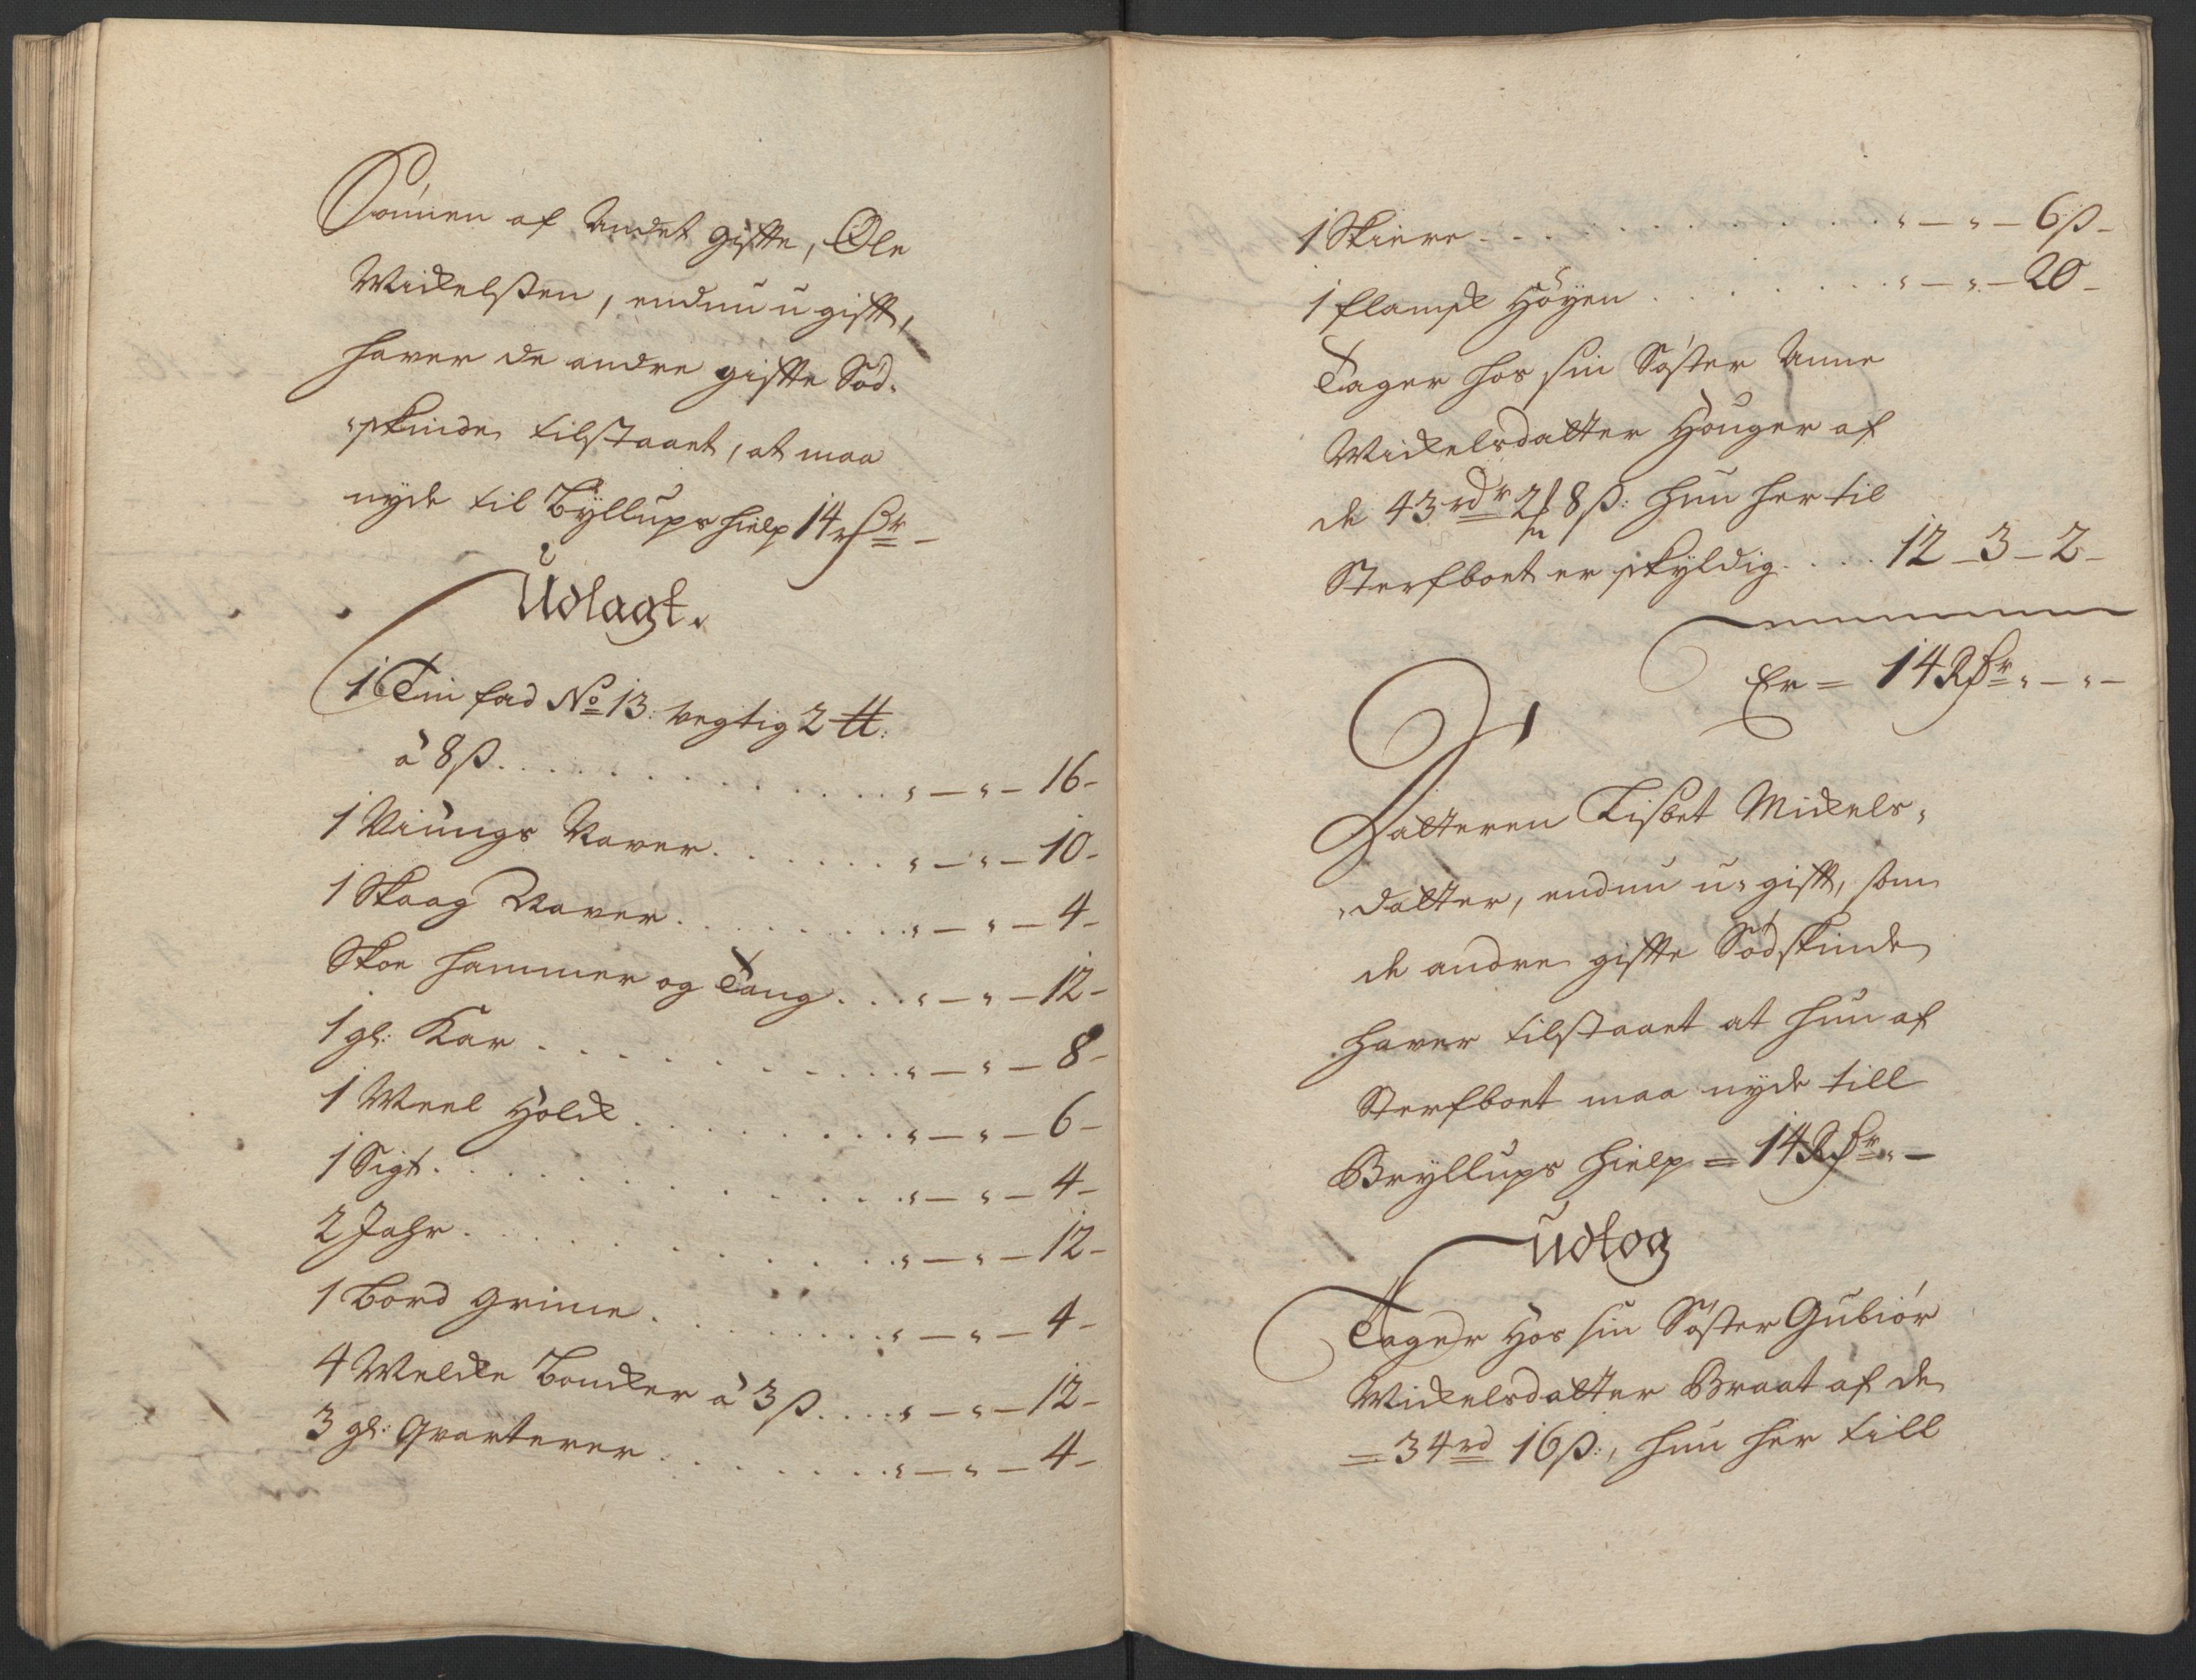 Sønnen af Andet gifte, Ole
Mickelsßen, endnu u gift,
hafver de andre gifte Sød-
skinde tilstaaet, at maa
nyde til Bÿllups hielp 14 rdr -
Udlagt.
1 Tin fad No 13: vegtig 2 ℔:
à 8ß. . . . . „ — „ — 16 -
1 Viungs Naver . . . . „ — „ — 10 -
1 Skaag Naver . . . . „ — „ — 4 -
Skoe hammer og Tang . . . „ — „ — 12 -
1 gl: Kar . . . . „ — „ — 8 -
1 Meel Holck . . . . „ — „ — 6 -
1 Sigt . . . . „ — „ — 4 -
2 . . . . „ — „ — 12 -
1 Bord grime . . . . „ — „ — 4 -
4 Melcke Boncker à 3ß . . . . „ — „ — 12 -
3 gl: qvarterer . . . . „ — „ — 4 -
1 Skiere . . . . „ — „ — 6ß -
1 Høÿen . . . . „ — „ — 20 -
Tager hos sin Søster Anne
Mickelsdatter Houger af
de 43 rdr 2 8ß: hun her til
Sterfboet er skÿldig . . . . 12 - 3 - 2 -
Er = 14 Rdr „ — „ —
Datteren Lisbet Mickels-
datter, endnu u-gift, som
de andre gifte Sødskinde
hafver tilstaaet at hun af
Sterfboet maa nÿde till
Brÿllups hielp = 14 Rdr „ —
Udtog
Tager Hos sin Søster Gubiør
Mickelsdatter Braat af de
= 34 rd 16ß:, hun her till